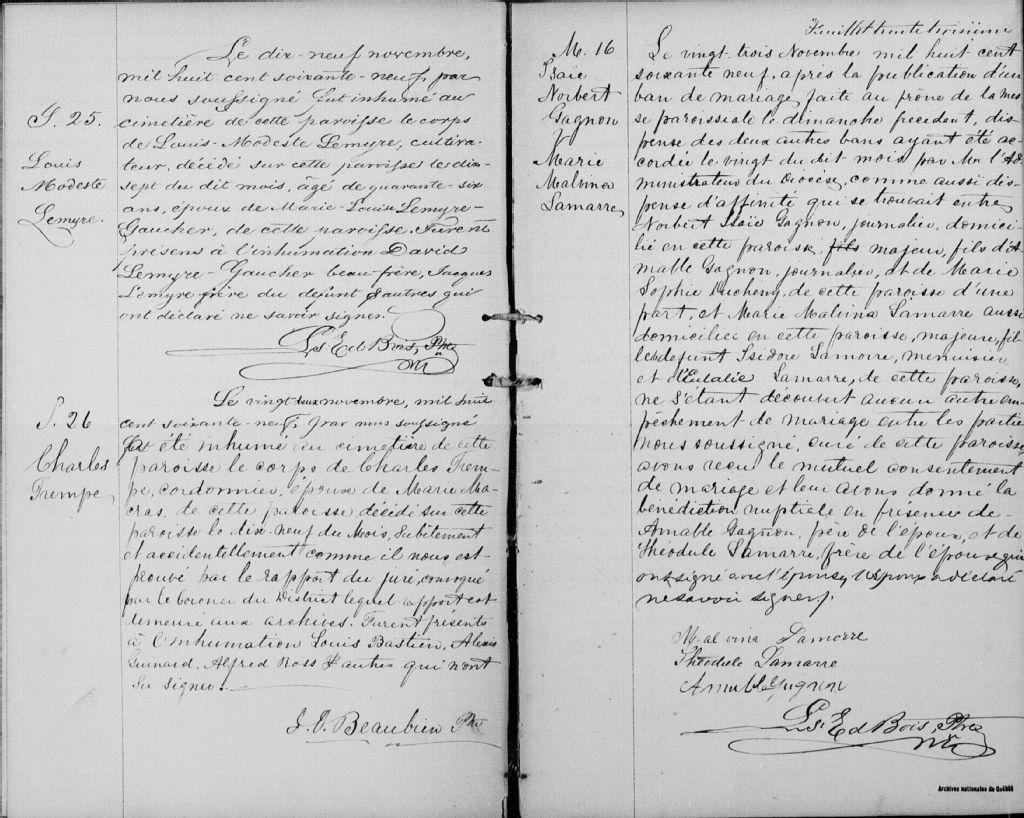 S. 25.
Louis
Modeste
Lemyre.
Le dix-neuf novembre,
mil huit cent soixante-neuf, par
nous soussigné fut inhumé au
cimetière de cette paroisse le corps
de Louis-Modeste Lemyre, cultiva-
teur, décédé sur cette paroisse le dix-
sept du dit mois, âgé de quarante-six
ans, époux de Marie-Louise Lemyre-
Gaucher, de cette paroisse. Furent
présens à l'inhumation David
Lemyre-Gaucher beau-frère, Jacques
Lemyre frère du defunt & autres qui
ont déclaré ne savoir signer.
Ls. Ed Bois, Ptre
S. 26
Charles
Trempe,
Le vingt deux novembre, mil huit
cent soixante-neuf, par nous soussigné
été inhumé au cimetière de cette
paroisse le corps de Charles Trem-
pe, cordonnier, époux de Marie Ma-
cras, de cette paroisse décédé sur cette
paroisse le dix-neuf du Mois, subitement
et accidentellement comme il nous est
prouvé par le rapport du juré, convoqué
par le Coroner du District lequel rapport est
demeuré aux archives. Furent présents
à l'inhumation Louis Bastien, Alexis
Guinard, Alfred Ross & autres qui n'ont
Su signer.
J. O. Beaubien Ptre
Feuillet trente troisième
M. 16
Isaïe
Norbert
Gagnon
&
Marie
Malvina
Lamarre
Le vingt-trois Novembre mil huit cent
soixante neuf, après la publication d'un
ban de mariage faite au prône de la mes
se paroissiale le dimanche précédent, dis
pense des deux autres bans ayant été ac
cordée le vingt du dit mois par Mr l'Ad
ministrateur du Diocèse, comme aussi dis
pense d'affinité qui se trouvait entre
Norbert Isaïe Gagnon, journalier, domici-
lié en cette paroisse, fils majeur, fils d'A
mable Gagnon, journalier, et de Marie
Sophie Ducheny, de cette paroisse d'une
part, et Marie Malvina Lamarre aussi
domiciliée en cette paroisse, majeure, fil
le de defunt Isidore Lamarre, menuisier
et d'Eulalie Lamarre, de cette paroisse,
ne s'étant découvert aucun autre em
pêchement de mariage entre les partie
nous soussigné, curé de cette paroisse,
avons reçu le mutuel consentement
de mariage et leur avons donné la
bénédiction nuptiale en présence de
Amable Gagnon, père de l'époux, et de
Théodule Lamarre, frère de l'épouse qui
ont signé avec l'épouse, l'époux a déclaré
ne savoir signer.
Malvina Lamarre
Théodule Lamarre
Amable Gagnon
Ls. Ed Bois, Ptre
Archives nationales du Québec